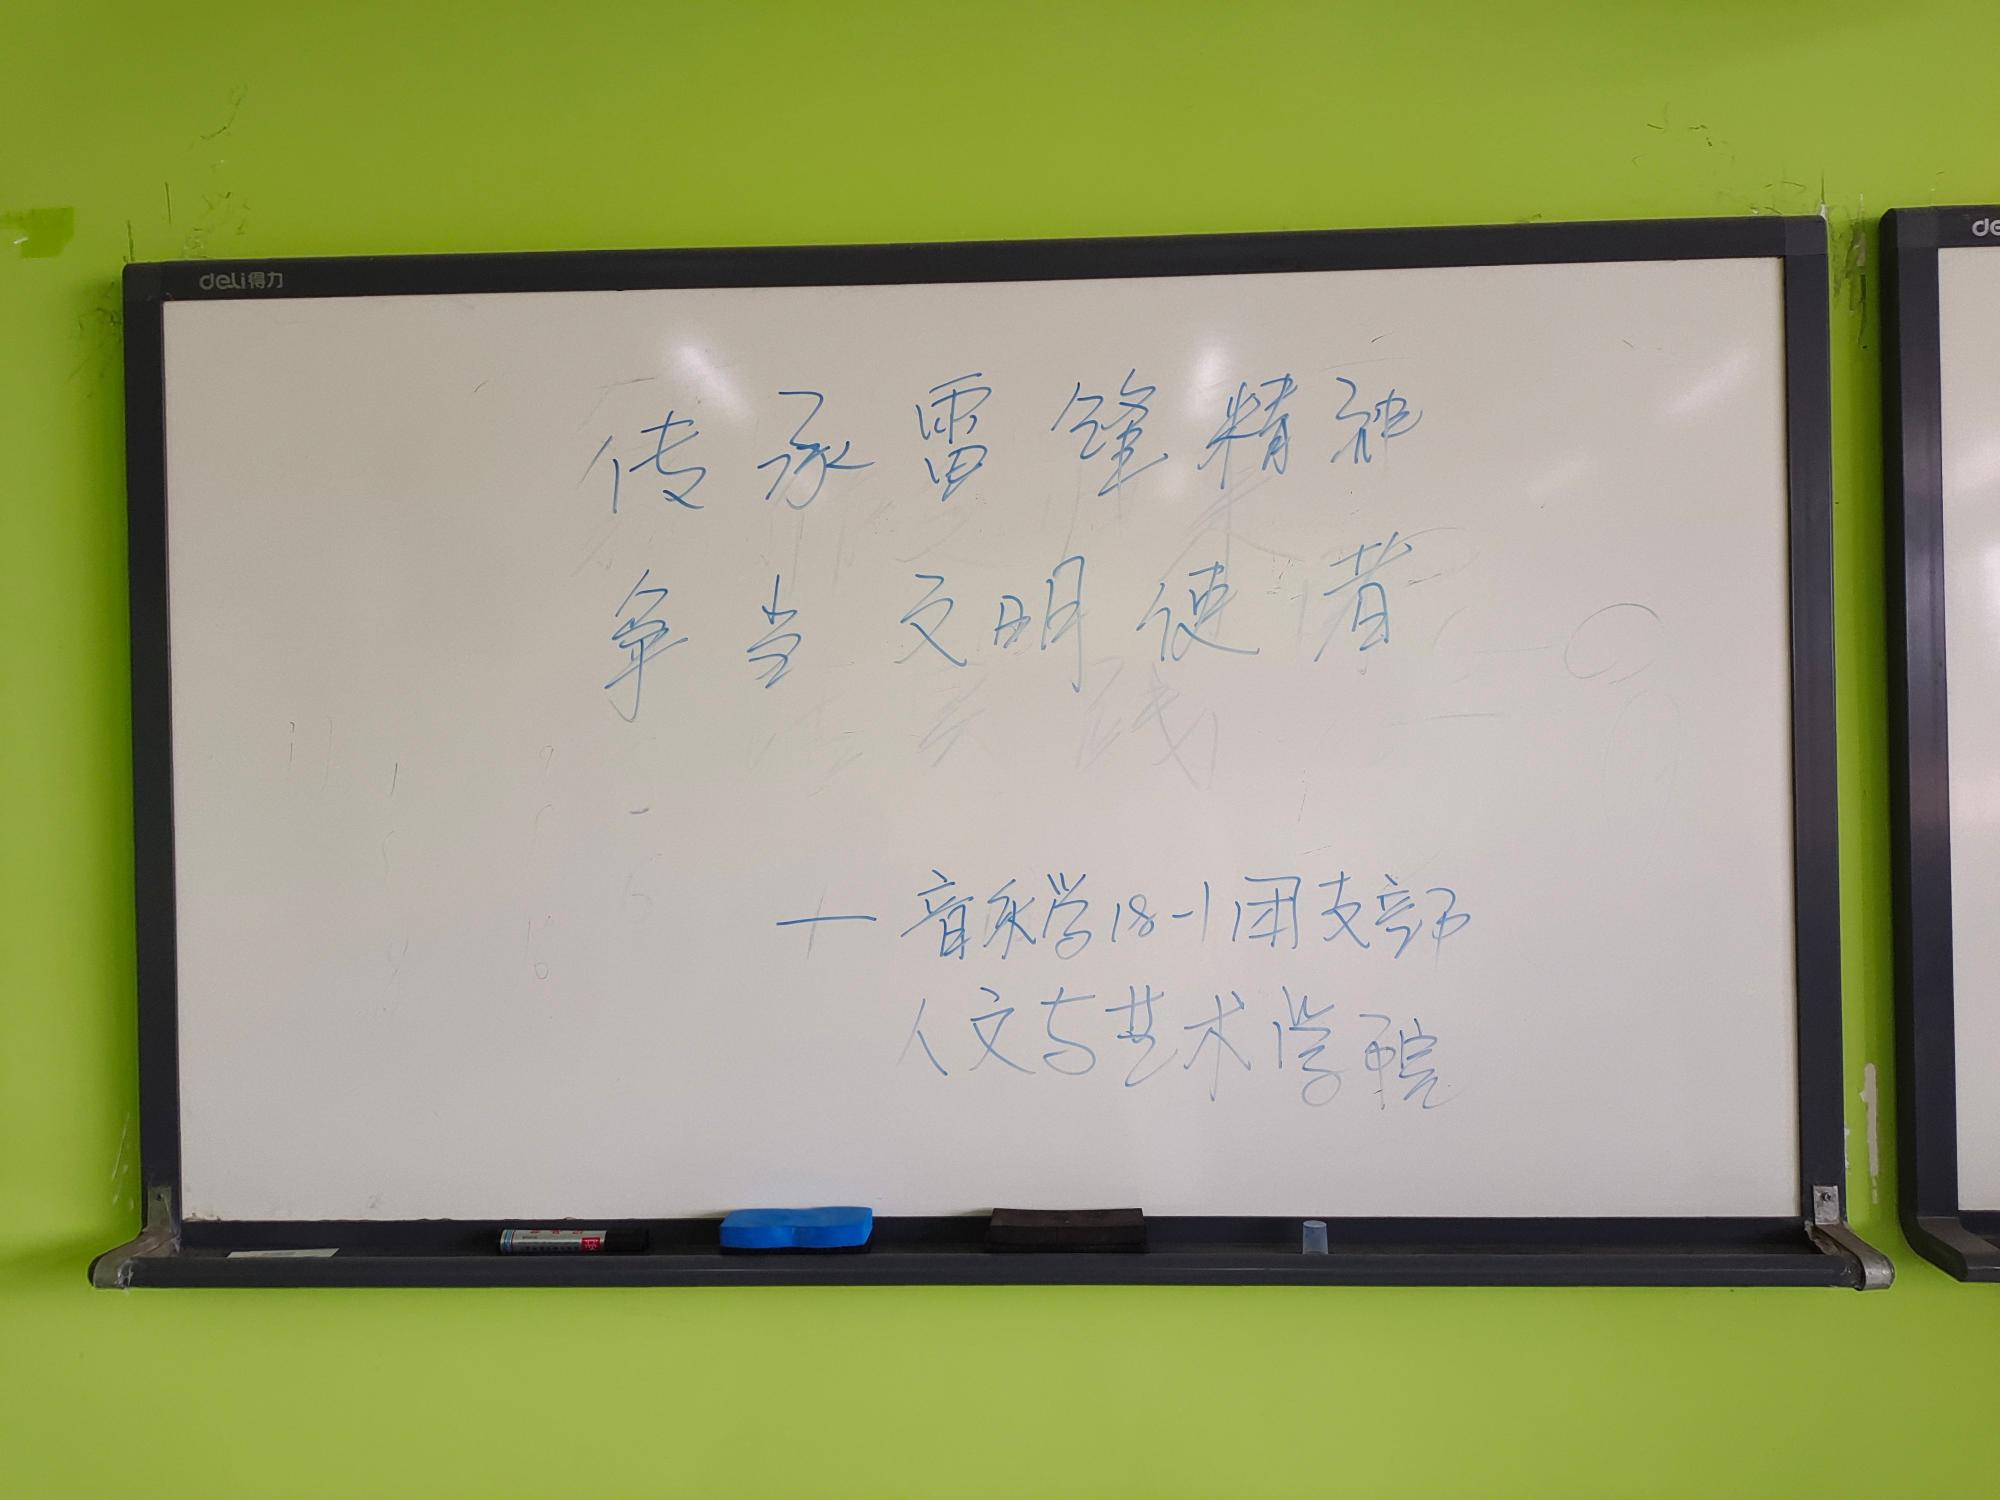 deli得力
de
传承雷锋精神
争当文明使者
——音乐学18-1团支部
人文与艺术学院